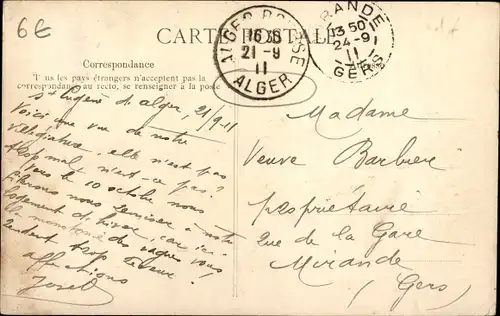 6€
CARTE POSTALE
ALGER BOURSE
16 30
21 -9
11
ALGER
MIRANDE
13 50
24 -9
11
GERS
Correspondance
Tous les pays étrangers n'acceptent pas la
correspondance au recto, se renseigner à la poste
St Eugène d'alger, 21/9-11
Voici une vue de notre
villégiature - elle n'est pas
trop mal n'est-ce pas?
Vers le 10 octobre nous
nous à notre
logement d'hiver, car ici
la des vagues vous
rendent trop
affections
Josel
Madame
Veuve Barbière
propriétaire
Rue de la Gare
Mirande
(Gers)